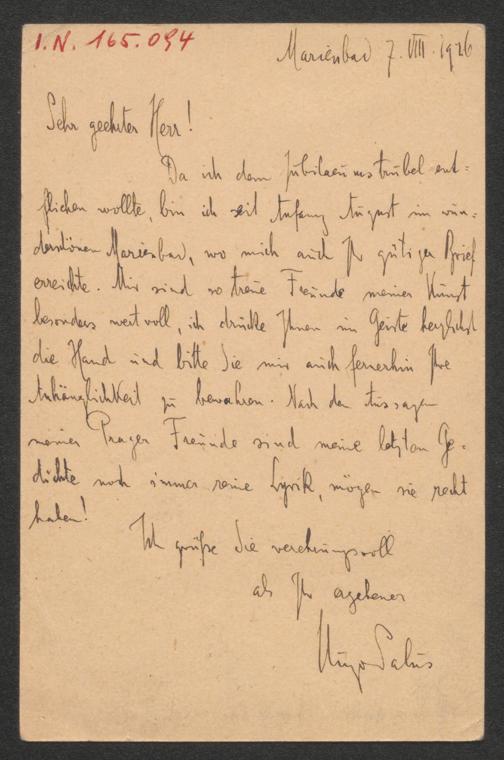 I.N. 165.094
Marienbad 7. VIII. 1926
Sehr geehrter Herr!
Da ich dem Jubilaeumstrubel ent-
fliehen wollte, bin ich seit Anfang August im wun-
derschönen Marienbad, wo mich auch Ihr gütiger Brief
erreichte. Mir sind so treue Freunde meiner Kunst
besonders wertvoll, ich drücke Ihnen im Geiste herzlichst
die Hand und bitte Sie mir auch fernerhin Ihre
Anhänglichkeit zu bewahren. Nach den Aussagen
meiner Prager Freunde sind meine letzten Ge-
dichte noch immer reine Lyrik, mögen sie recht
haben!
Ich grüße Sie verehrungsvoll
als Ihr ergebener
Hugo Salus